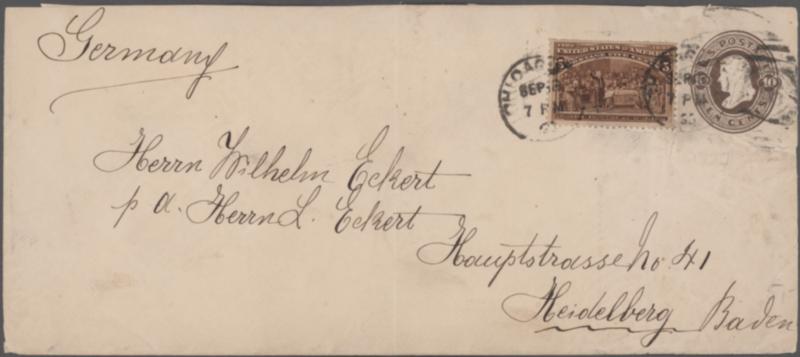 Germany
1492 UNITED STATES OF AMERICA 1892
5
CHICAGO
SEP
7 P M
U.S. POSTAGE
10
TEN CENTS
7 P
Herrn Wilhelm Eckert
p a. Herrn L. Eckert
Hauptstrasse No 41
Heidelberg Baden